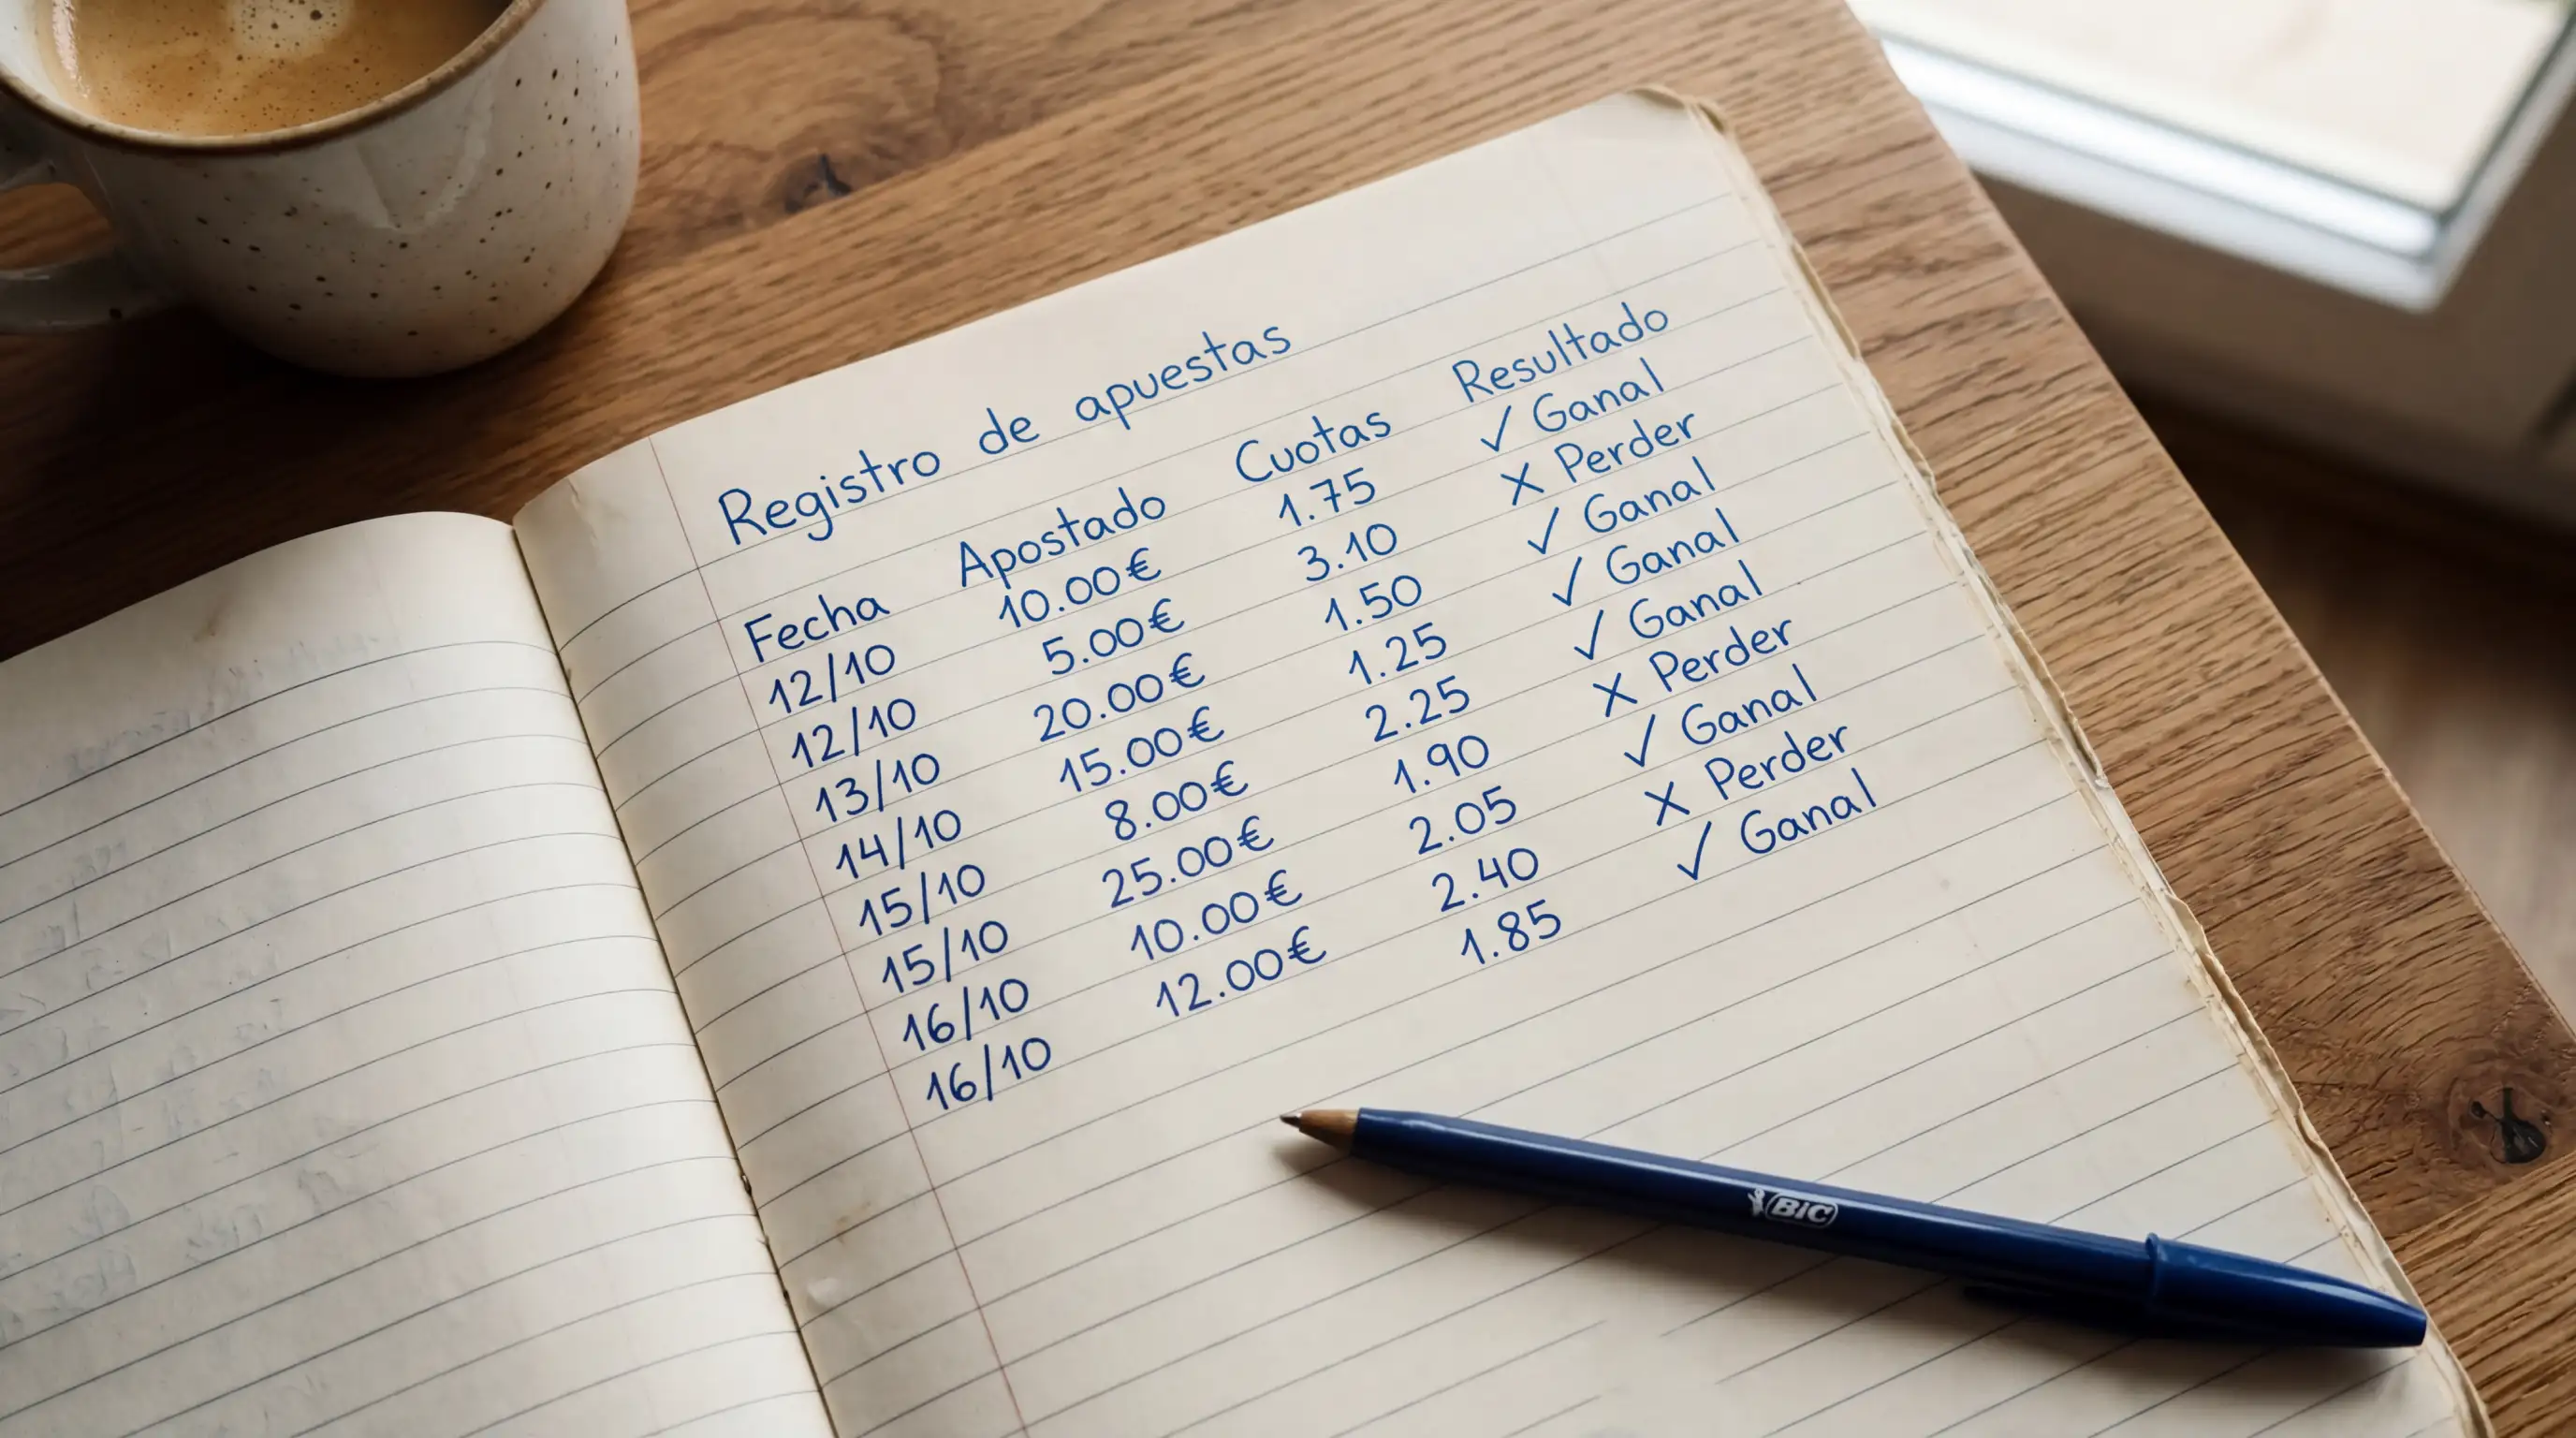 Registro de apuestas
Fecha Apostado Cuotas Resultado
12/10 10.00€ 1.75 ✓ Ganal
12/10 5.00€ 3.10 X Perder
13/10 20.00€ 1.50 ✓ Ganal
14/10 15.00€ 1.25 ✓ Ganal
15/10 8.00€ 2.25 ✓ Ganal
15/10 25.00€ 1.90 X Perder
16/10 10.00€ 2.05 ✓ Ganal
16/10 12.00€ 2.40 X Perder
1.85 ✓ Ganal
BIC